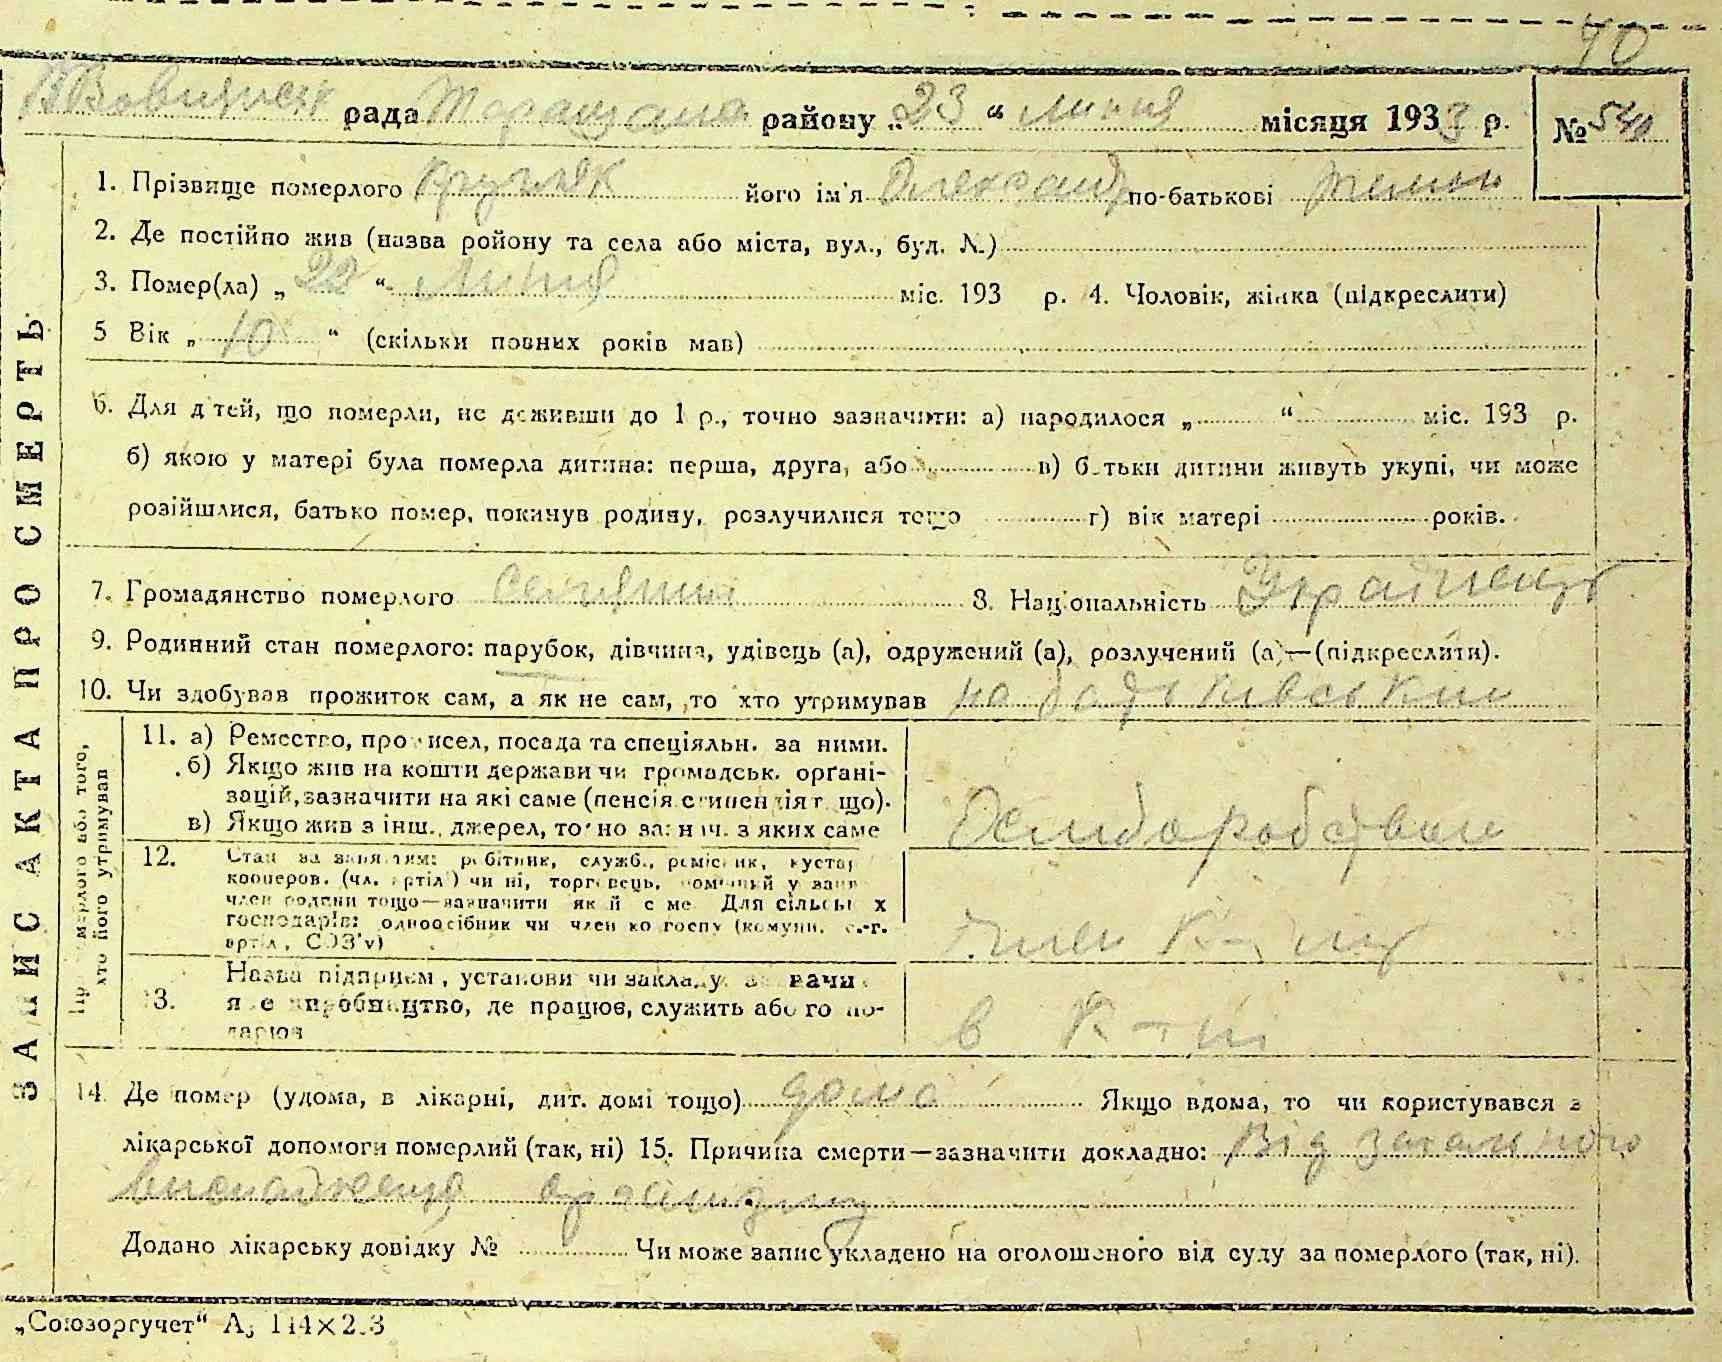 40
рада Таращана району „23“ Липня місяця 1933 р. № 540
1. Прізвище померлого його ім'я Олександр по-батькові
2. Де постійно жив (назва ройону та села або міста, вул., буд. №)
3. Помер(ла) „22“ Липня міс. 193 р. 4. Чоловік, жінка (підкреслити)
5 Вік „10“ (скільки повних років мав)
6. Для дітей, що померли, не доживши до 1 р., точно зазначити: а) народилося „ “ міс. 193 р.
б) якою у матері була померла дитина: перша, друга, або в) батьки дитини живуть укупі, чи може
розійшлися, батько помер, покинув родину, розлучилися тощо г) вік матері років.
7. Громадянство померлого 8. Національність Українець
9. Родинний стан померлого: парубок, дівчина, удівець (а), одружений (а), розлучений (а)—(підкреслити).
10. Чи здобував прожиток сам, а як не сам, то хто утримував на батьківськім
ЗАПИС АКТА ПРО СМЕРТЬ
Пр померлого або того,
хто його утримував
11. а) Ремество, промисел, посада та спеціяльн. за ними.
б) Якщо жив на кошти держави чи громадськ. орґані-
зацій, зазначити на які саме (пенсія стипендія т. що).
в) Якщо жив з інш. джерел, точно зазнач. з яких саме
12. Стан за заняттям: робітник, служб., ремісник, кустар
кооперов. (чл. артілі) чи ні, торговець, помічний у занят
член родини тощо—зазначити який саме Для сільськ х
господарів: одноосібник чи член колгоспу (комуни, с.-г.
артіл, СОЗ'у)
Член К-пу
13. Назва підприєм, установи чи закладу зазначи
яке виробництво, де працює, служить або го по-
дарює
в К-пі
14. Де помер (удома, в лікарні, дит. домі тощо) дома Якщо вдома, то чи користувався з
лікарської допомоги померлий (так, ні) 15. Причина смерти—зазначити докладно: Від загального
виснаження організму
Додано лікарську довідку № Чи може запис укладено на оголошеного від суду за померлого (так, ні).
„Союзоргучет“ А5 144×2.3